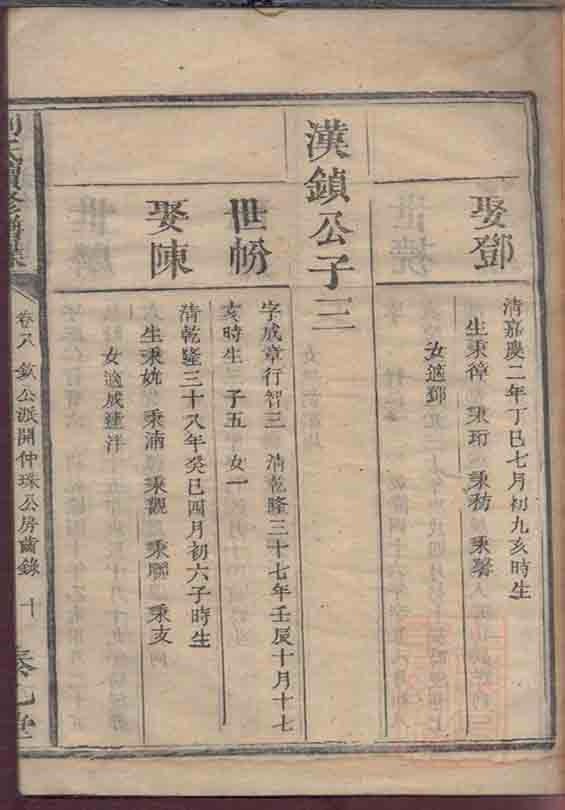 娶鄧
清嘉慶二年丁巳七月初九亥時生
生秉
女適鄧
漢鎮公子三
世
字成章行智三 清乾隆三十七年壬辰十月十七
亥時生 子五 女一
娶陳
清乾隆三十八年癸巳四月初六子時生
生秉姚 秉湳 秉觀 秉聯 秉亥
女適成達洋
卷八 欽公派開仲珠公房齒錄 十